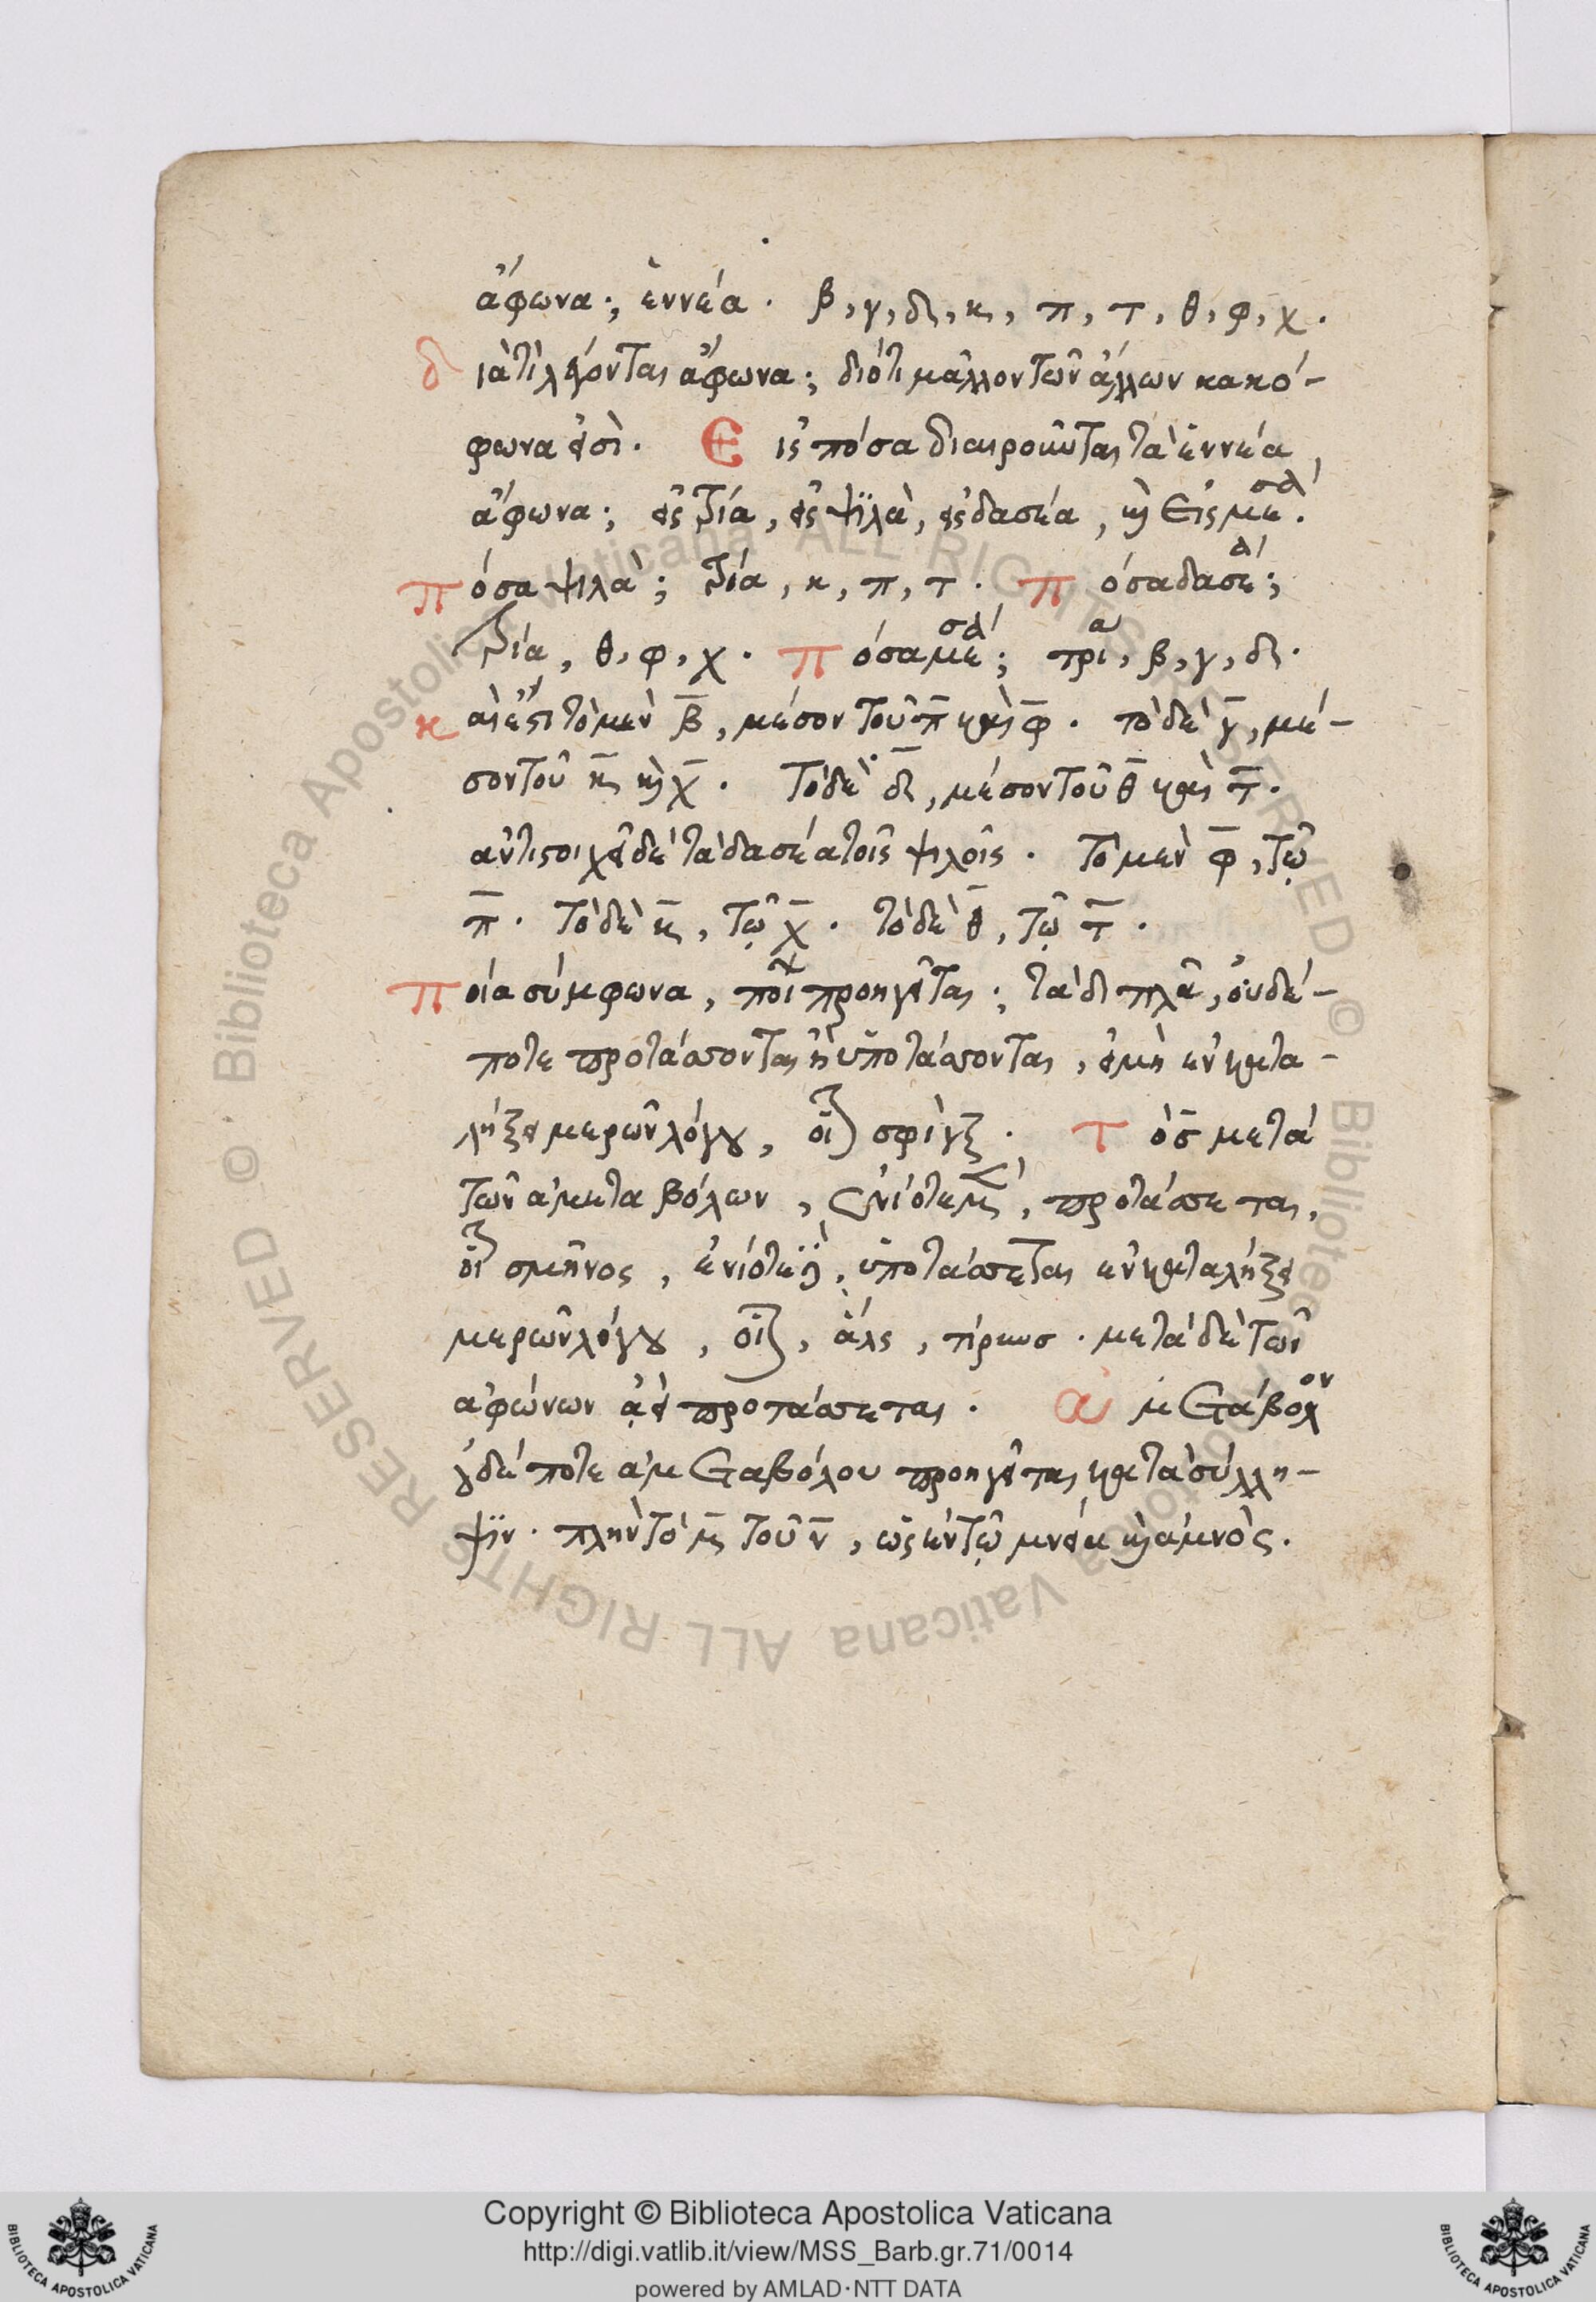 ἄφωνα; ἐννέα. β, γ, δ, κ, π, τ, θ, φ, χ.
διὰ τὶ λέγονται ἄφωνα; διότι μᾶλλον τῶν ἄλλων κακό-
φωνα εἰσὶ. Εἰς πόσα διαιροῦνται τὰ ἐννέα
ἄφωνα; εἰς τρία, εἰς ψϊλὰ, εἰς δασέα, κὶ Εἰς μέσα.
πόσα ψιλὰ; τρία, κ, π, τ. πόσα δασέα;
τρία, θ, φ, χ. πόσα μέσα; τρία, β, γ, δ.
καὶ ἔστι τὸ μὲν β̅, μέσον τοῦ π̅ καὶ φ̅. τὸ δὲ γ̅, μέ-
σον τοῦ κ̅ κὶ χ̅. Τὸ δὲ δ̅, μέσον τοῦ θ̅ καὶ τ̅.
ἀντιστοιχεῖ δὲ τὰ δασέα τοῖς ψιλοῖς. Τὸ μὲν φ̅, τῷ
π̅. Τὸ δὲ κ̅, τῷ χ̅. τὸ δὲ θ̅, τῷ τ̅.
ποία σύμφωνα, ποίων προηγεῖται; τὰ διπλᾶ, οὐδέ-
ποτε προτάσσονται ἢ ὑποτάσσονται, εἰμὴ ἐν κατα-
λήξει μερῶν λόγου, οἷον σφὶγξ. Τὸ σ̅ μετά
τῶν ἀμεταβόλων, ἐνίοτε μὲν, προτάσσεται,
οἷον σμῆνος, ἐνίοτε δὲ, ὑποτάσσεται ἐν καταλήξει
μερῶν λόγου, οἷον, ἅλς, τίρυνσ. μετὰ δὲ τῶν
ἀφώνων ἀεὶ προτάσσεται. ἀμετάβολον
οὐδέποτε ἀμεταβόλου προηγεῖται κατὰ σύλλη-
ψϊν. πλὴν τὸ μ̅ τοῦ ν̅, ὡς ἐν τῷ μνεία κὶ ἀμνὸς.
Copyright © Biblioteca Apostolica Vaticana
http://digi.vatlib.it/view/MSS_Barb.gr.71/0014
powered by AMLAD·NTT DATA
Biblioteca Apostolica Vaticana ALL RIGHTS RESERVED © Biblioteca Apostolica Vaticana ALL RIGHTS RESERVED ©
BIBLIOTECA APOSTOLICA VATICANA
BIBLIOTECA APOSTOLICA VATICANA